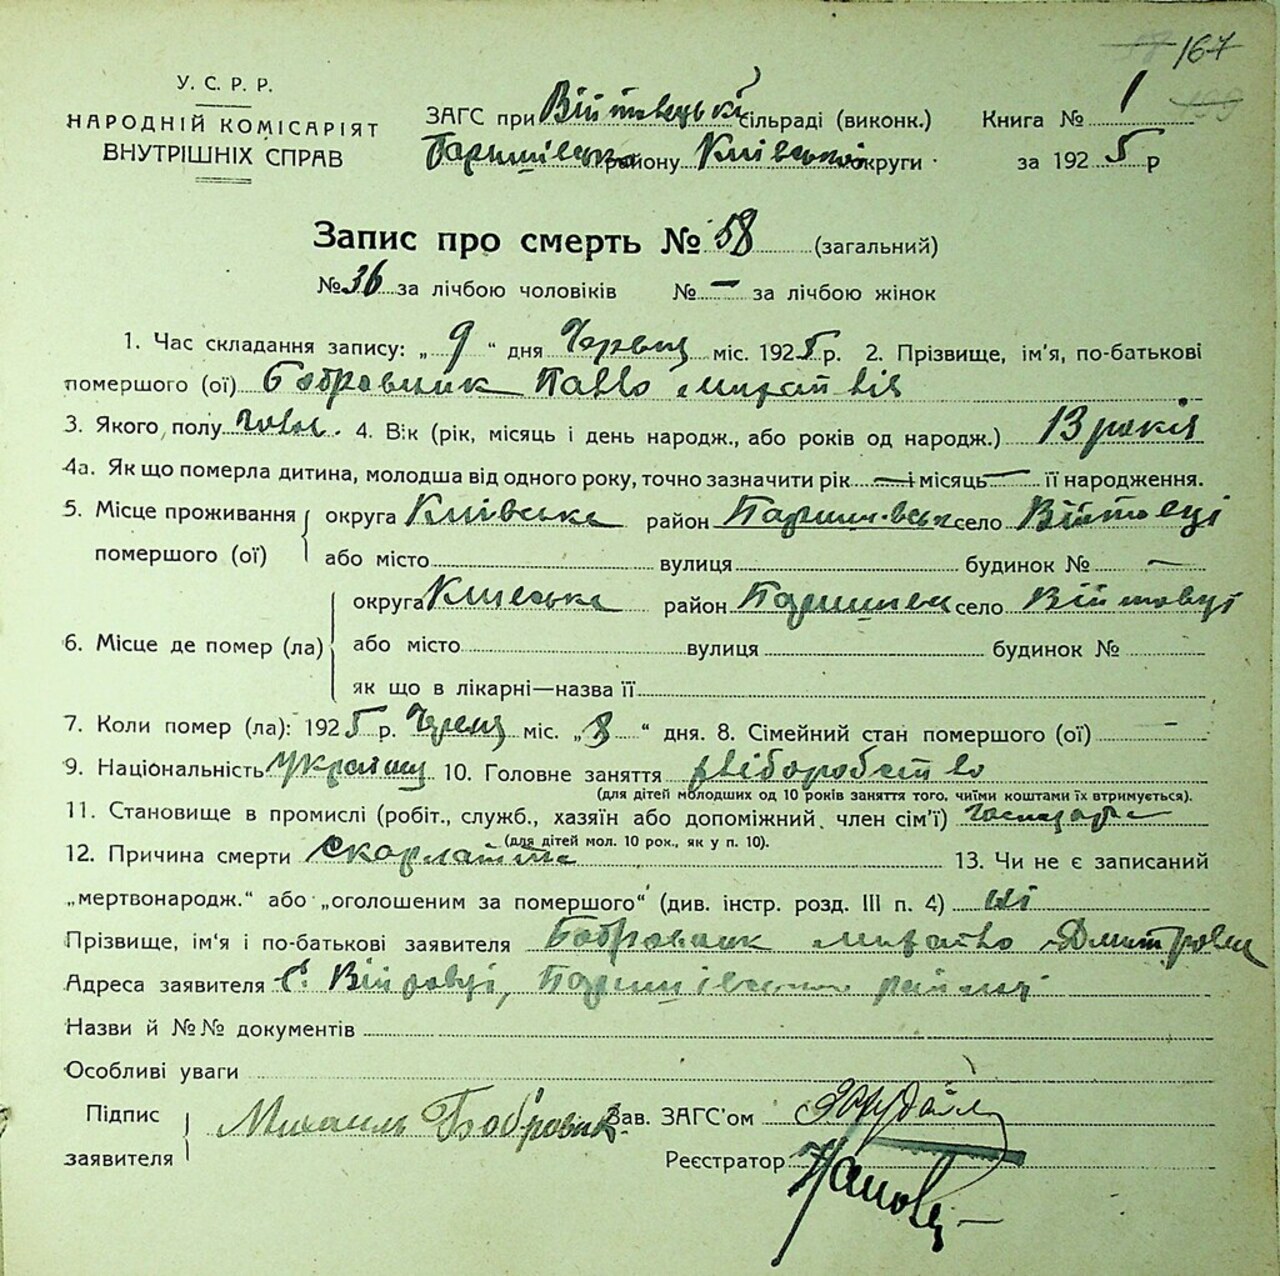 167
У. С. Р. Р.
НАРОДНІЙ КОМІСАРІЯТ
ВНУТРІШНІХ СПРАВ
ЗАГС при Війтовецькій сільраді (виконк.) Книга № 1
Баришівськ району Київської округи за 1925 р
Запис про смерть № 58 (загальний)
№ 36 за лічбою чоловіків № — за лічбою жінок
1. Час складання запису: „ 9 “ дня Червця міс. 1925 р. 2. Прізвище, ім'я, по-батькові
помершого (ої) Бобровник Павло
3. Якого полу чолов. 4. Вік (рік, місяць і день народж., або років од народж.) 13 років
4а. Як що померла дитина, молодша від одного року, точно зазначити рік — і місяць — її народження.
5. Місце проживання помершого (ої) округа Київська район Баришівськ село Війтовці
або місто вулиця будинок № —
6. Місце де помер (ла) округа Київська район Баришівськ село Війтовці
або місто вулиця будинок №
як що в лікарні—назва її
7. Коли помер (ла): 1925 р. Червця міс. „ 8 “ дня. 8. Сімейний стан помершого (ої) —
9. Національність Українц 10. Головне заняття хліборобство
(для дітей молодших од 10 років заняття того, чиїми коштами їх втримується).
11. Становище в промислі (робіт., служб., хазяїн або допоміжний член сім'ї)
(для дітей мол. 10 рок., як у п. 10).
12. Причина смерти Скорлатина 13. Чи не є записаний
„мертвонародж.“ або „оголошеним за помершого“ (див. інстр. розд. III п. 4) ні
Прізвище, ім'я і по-батькові заявителя Бобровник Михайло Дмитрович
Адреса заявителя с. Війтовці, Баришівського району
Назви й №№ документів
Особливі уваги
Підпис заявителя Михаил Бобровник Зав. ЗАГС'ом
Реєстратор